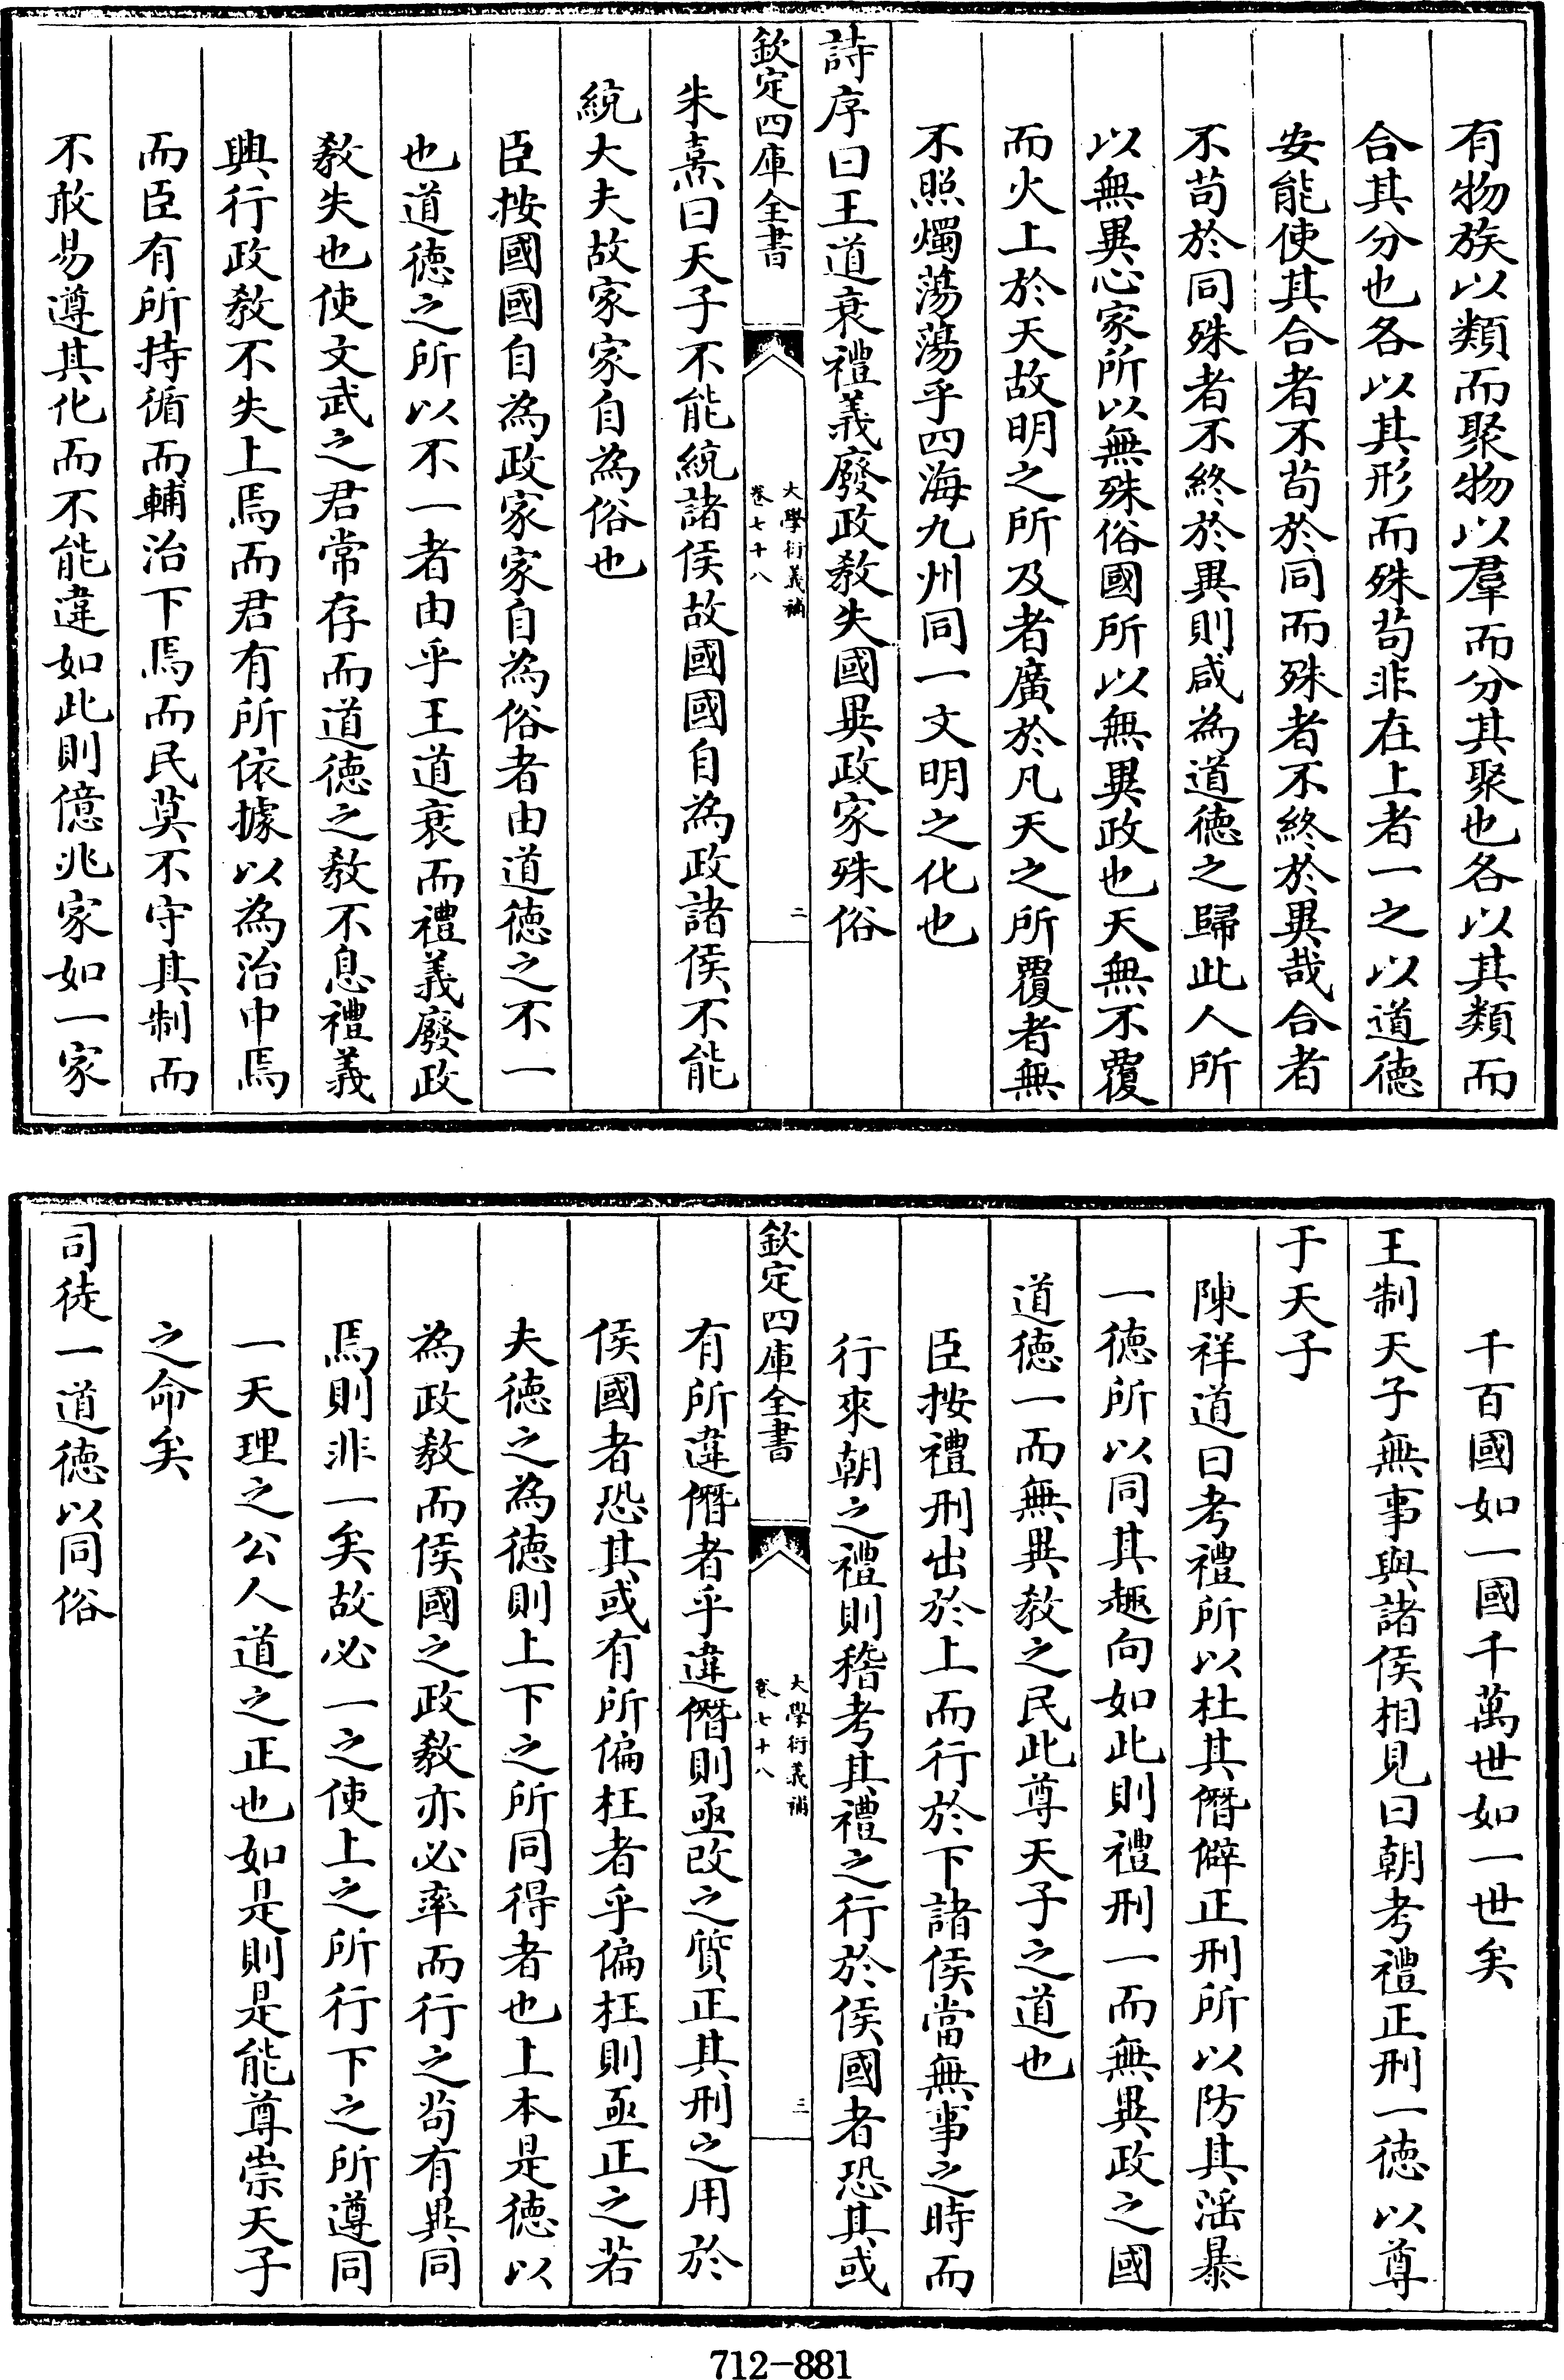 有物族以類而聚物以羣而分其聚也各以其類而
合其分也各以其形而殊苟非在上者一之以道徳
安能使其合者不苟於同而殊者不終於異哉合者
不苟於同殊者不終於異則咸為道徳之歸此人所
以無異心家所以無殊俗國所以無異政也天無不覆
而火上於天故明之所及者廣於凡天之所覆者無
不照燭蕩蕩乎四海九州同一文明之化也
詩序曰王道衰禮義廢政教失國異政家殊俗
欽定四庫全書
大學衍義補
卷七十八
二
朱熹曰天子不能統諸侯故國國自為政諸侯不能
統大夫故家家自為俗也
臣按國國自為政家家自為俗者由道徳之不一
也道徳之所以不一者由乎王道衰而禮義廢政
教失也使文武之君常存而道徳之教不息禮義
興行政教不失上焉而君有所依據以為治中焉
而臣有所持循而輔治下焉而民莫不守其制而
不敢易遵其化而不能違如此則億兆家如一家
千百國如一國千萬世如一世矣
王制天子無事與諸侯相見曰朝考禮正刑一徳以尊
于天子
陳祥道曰考禮所以杜其僭僻正刑所以防其滛暴
一徳所以同其趣向如此則禮刑一而無異政之國
道徳一而無異教之民此尊天子之道也
臣按禮刑出於上而行於下諸侯當無事之時而
行來朝之禮則稽考其禮之行於侯國者恐其或
欽定四庫全書
大學衍義補
卷七十八
三
有所違僭者乎違僭則亟改之質正其刑之用於
侯國者恐其或有所偏枉者乎偏枉則亟正之若
夫徳之為徳則上下之所同得者也上本是徳以
為政教而侯國之政教亦必率而行之茍有異同
焉則非一矣故必一之使上之所行下之所遵同
一天理之公人道之正也如是則是能尊崇天子
之命矣
司徒一道徳以同俗
712-881